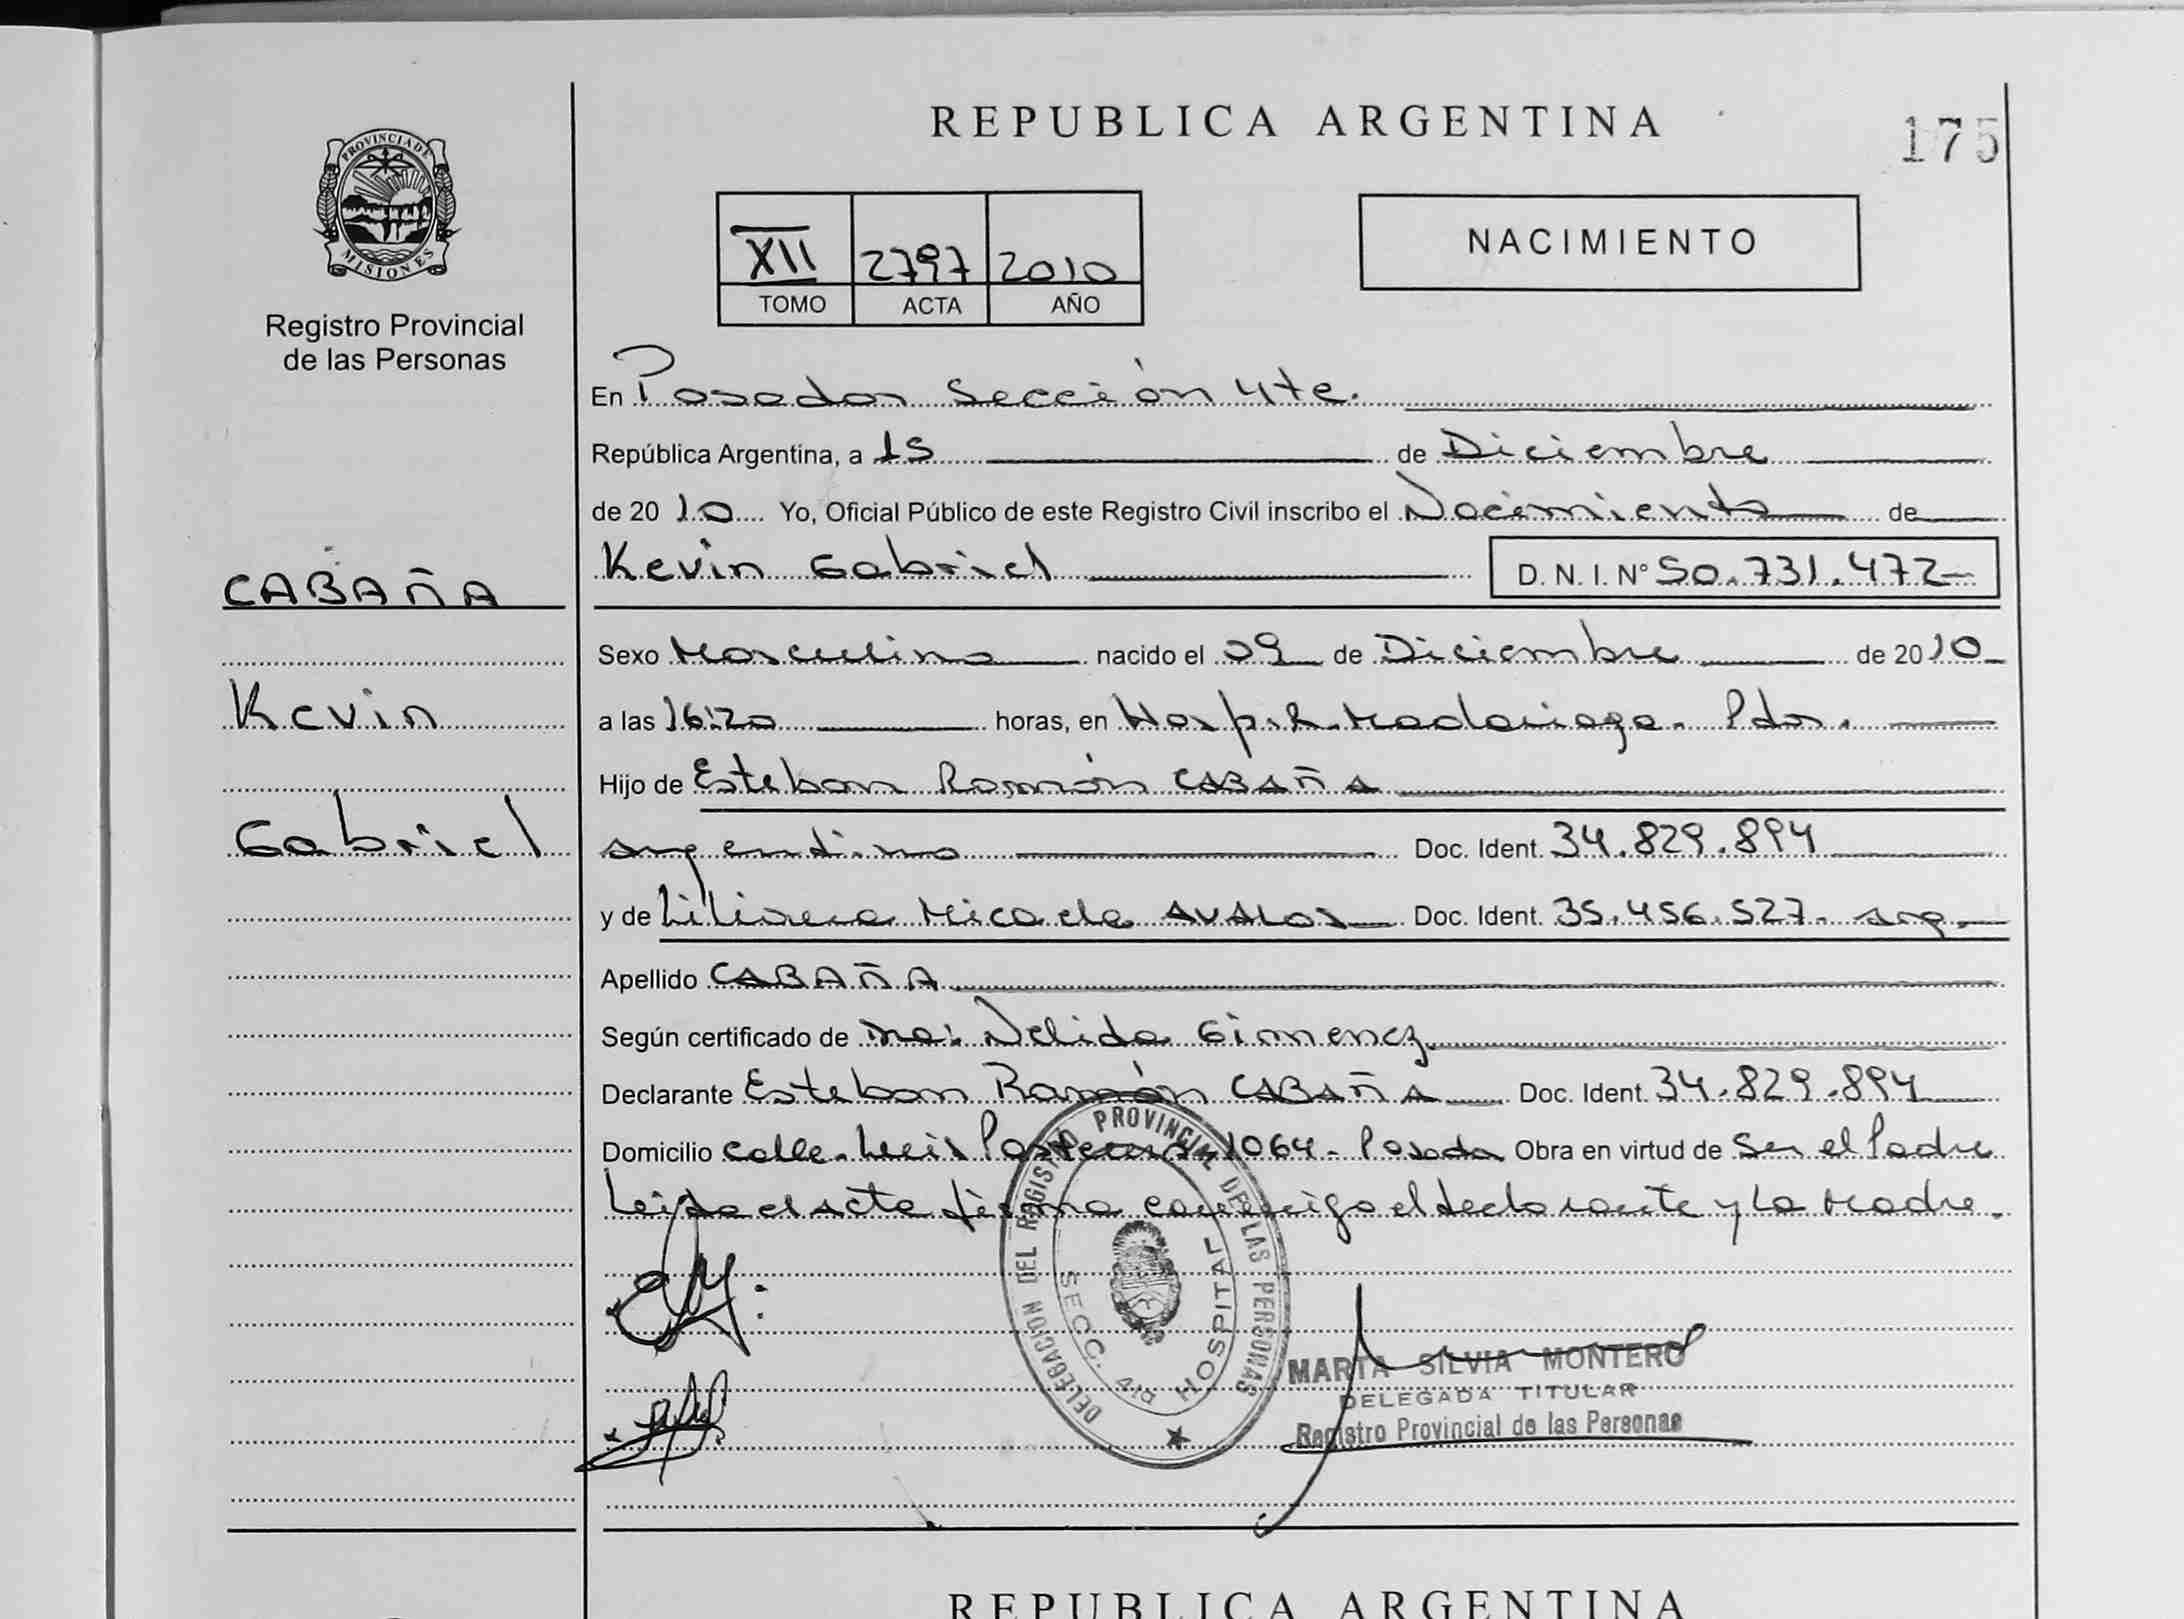 REPUBLICA ARGENTINA
175
PROVINCIA DE
MISIONES
Registro Provincial
de las Personas
XII 2797 2010
TOMO ACTA AÑO
NACIMIENTO
En Posadas Sección 4ta.
República Argentina, a 15 de Diciembre
de 2010 Yo, Oficial Público de este Registro Civil inscribo el Nacimiento de
Kevin Gabriel D. N. I. N° 50.731.472
CABAÑA
Kevin
Gabriel
Sexo Masculino nacido el 09 de Diciembre de 2010
a las 16:20 horas, en Hospit. Madariaga. Pdas.
Hijo de Esteban Ramón CABAÑA
argentino Doc. Ident. 34.829.894
y de Liliana Micaela AVALOS Doc. Ident. 35.456.527. arg.
Apellido CABAÑA
Según certificado de Nelida Gimenez
Declarante Esteban Ramón CABAÑA Doc. Ident. 34.829.894
Domicilio calle. Luis Pasteur 1064 - Posadas Obra en virtud de ser el Padre
Leida el acta firma conmigo el declarante y la Madre.
DELEGACION DEL REGISTRO PROVINCIAL DE LAS PERSONAS
SECC. 4ta HOSPITAL
MARTA SILVIA MONTERO
DELEGADA TITULAR
Registro Provincial de las Personas
REPUBLICA ARGENTINA